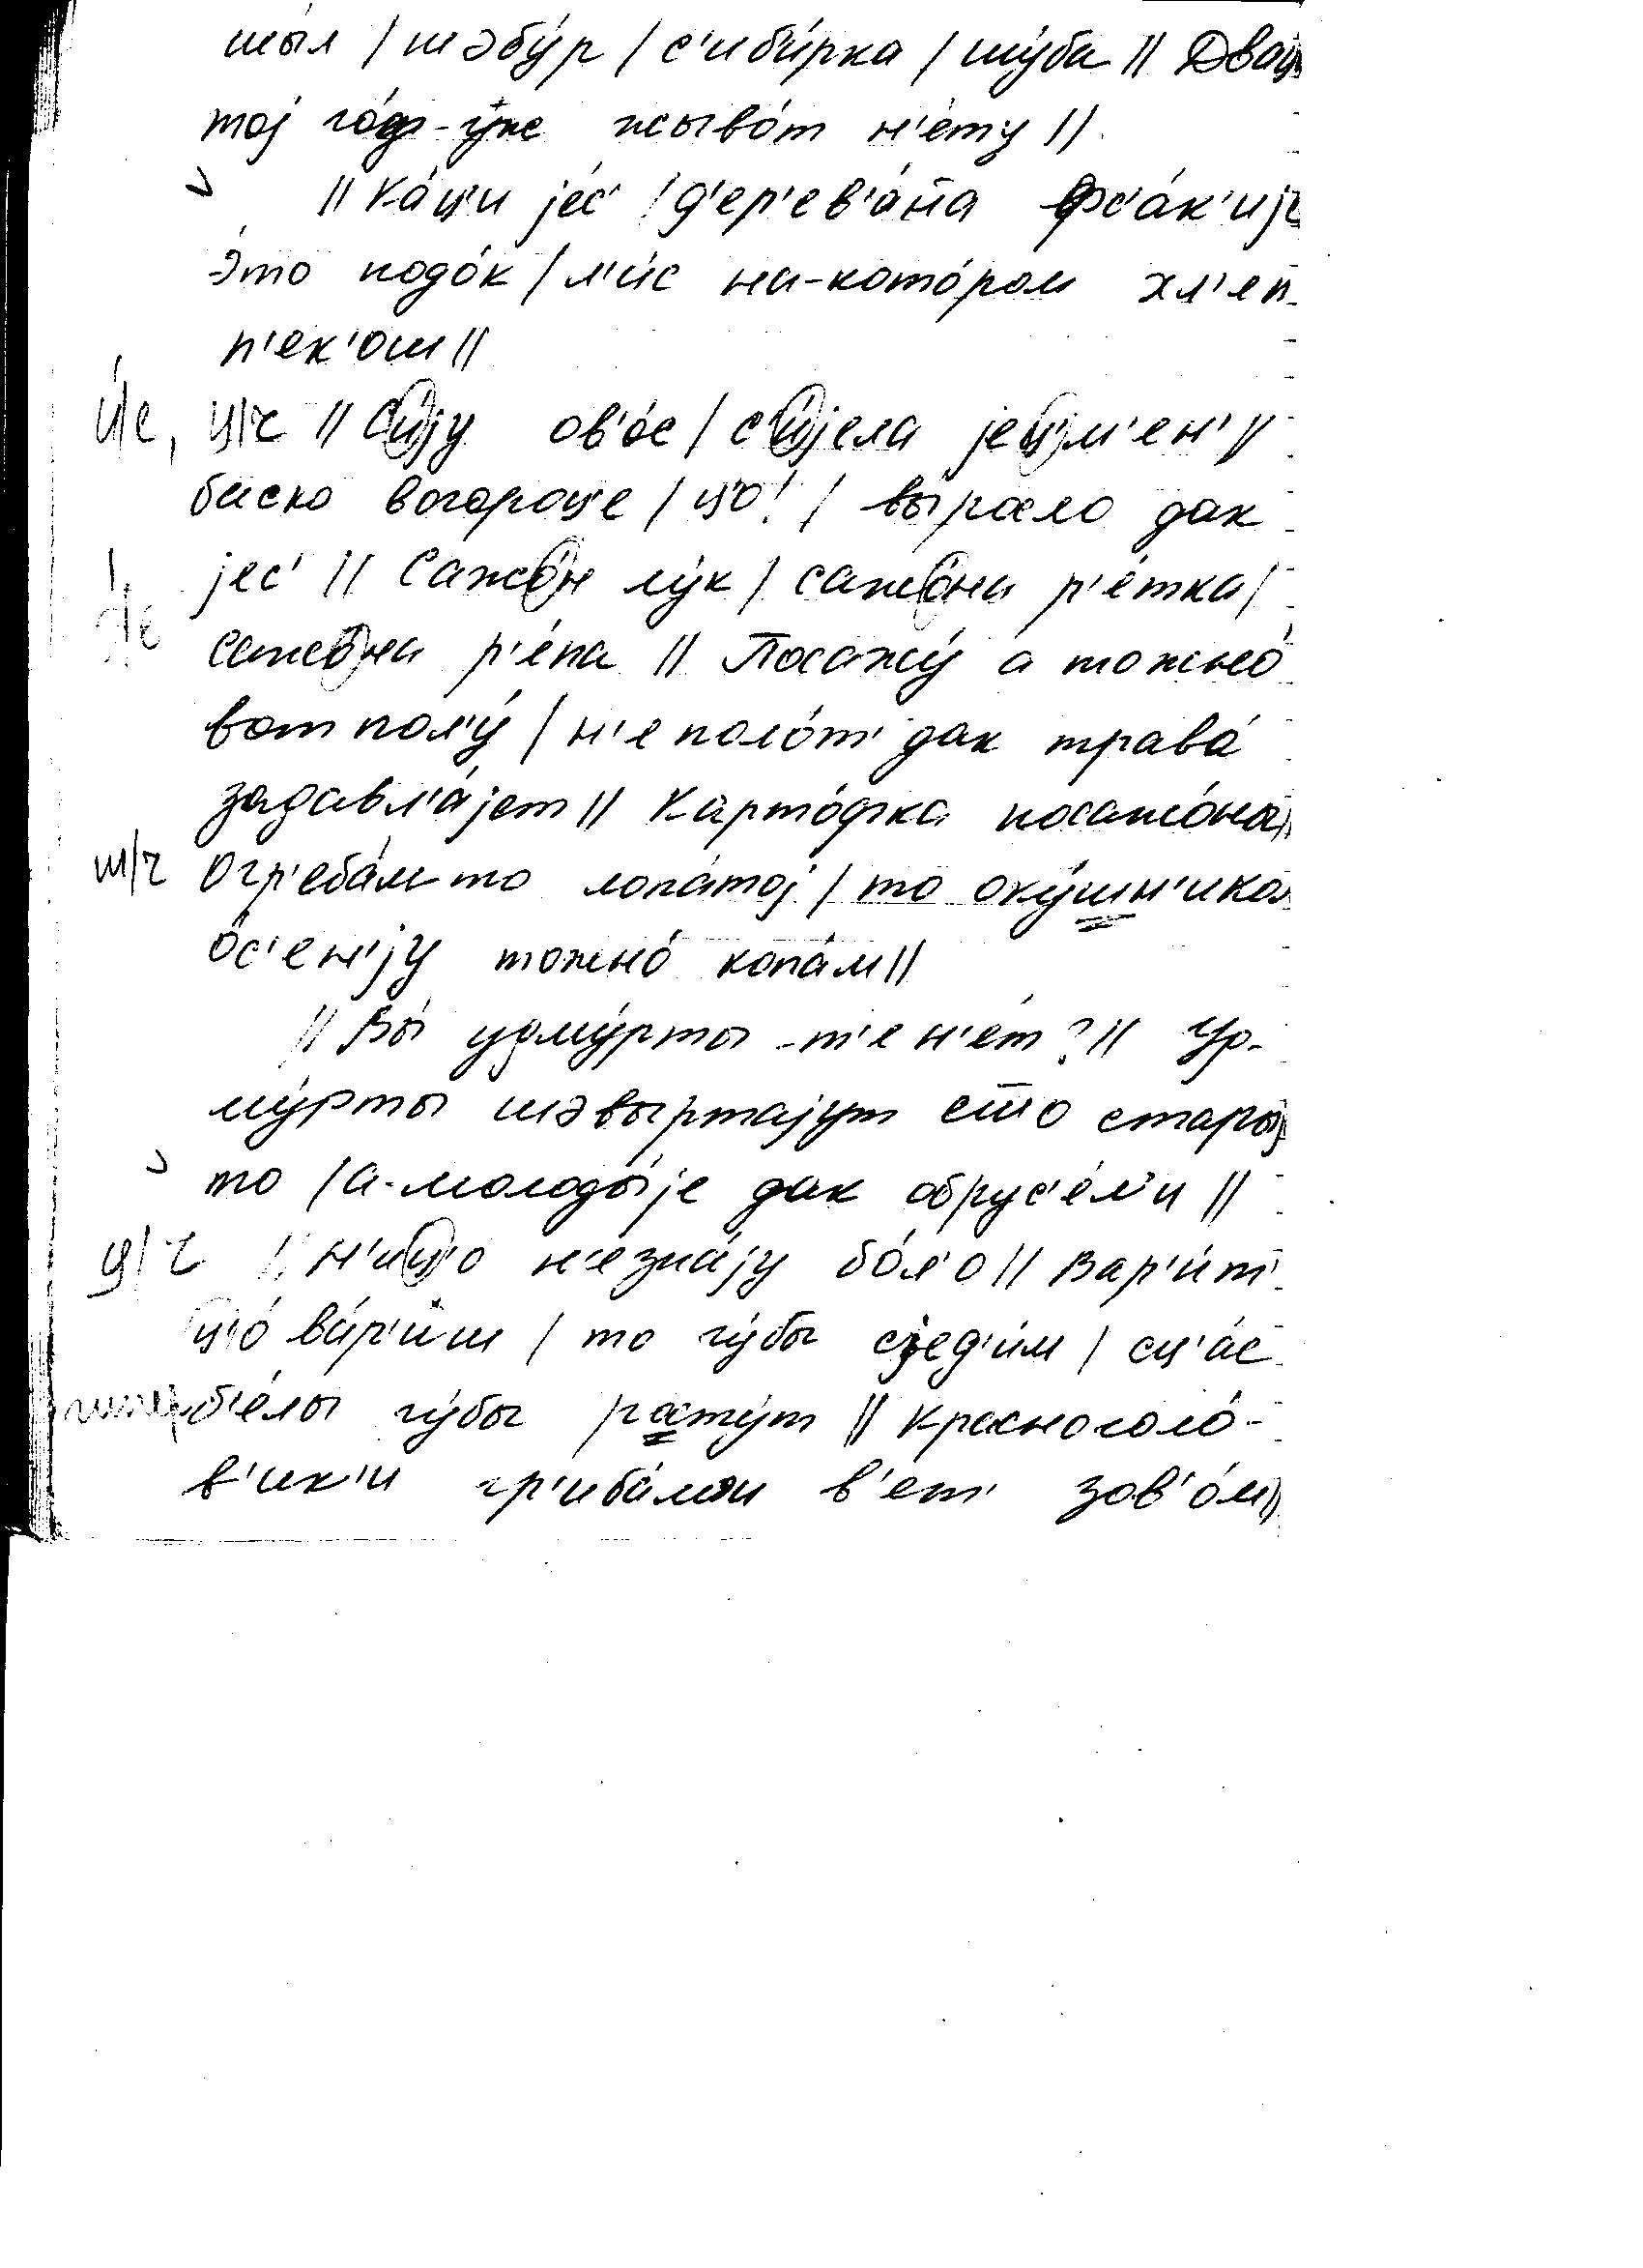 шы́л / шəбу́р / с'иби́рка / шу́ба // Двац
тој го́ф-уже жыво́т н'е́ту //
// Ка́ц'и је́с' / д'ер'ев'а́на фс'а́к'ијe
э́то подо́к / л'и́с на-кото́ром хл'еп
п'ек'ош //
и́/е, ц/ч // Си́ју ов'о́с / с'и́јела јец'м'ен' //
баско вогороце / цо! / вы́росло дак
јес' // Сажо́н лу́к / сажо́на р'е́тка /
сажо́на р'е́па // Посажу́ а тожно́
вот пол'у́ / н'е поло́т' дак трава́
задавл'а́јет // Карто́фка посажо́на //
ш/ч Огр'еба́м то лопа́тој / то оку́шн'иком
о́с'ен'ју тожно́ копа́м //
// Вы́ удму́рты -т'е н'е́т? // Уд-
му́рты шəвыртајут сто стары
то / а-молоды́је дак обрус'е́л'и //
ц/ч // Н'ицо́ н'езна́ју бо́л'о // Вар'и́т'
цо́ ва́р'иш / то гу́бы сјед'и́м / сц'а́с
б'е́лы гу́бы расту́т // Красноголо́-
в'ик'и гр'иба́ми в'ет' зов'о́м //